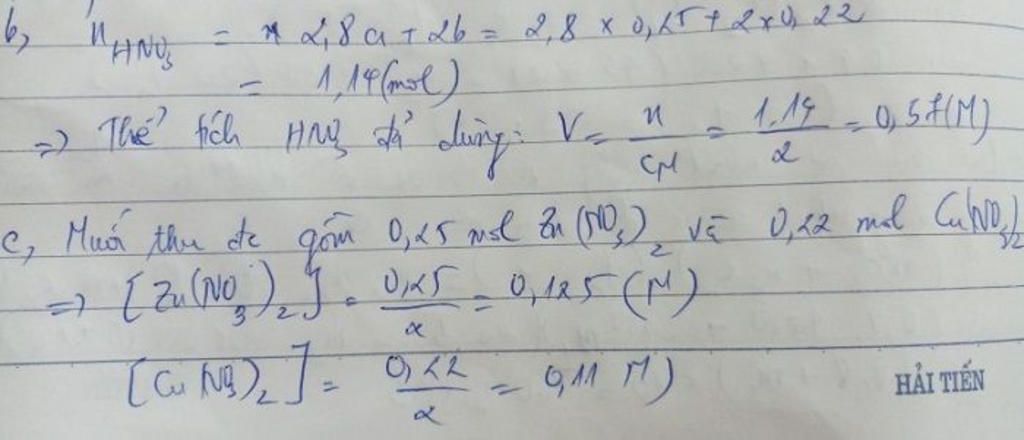 b, n HNO3 = 2,8a + 2b = 2,8 × 0,25 + 2 × 0,22
= 1,14 (mol)
=> Thể tích HNO3 đã dùng: V = n/CM = 1,14/2 = 0,57 (M)
c, Muối thu đc gồm 0,25 mol Zn(NO3)2 và 0,22 mol Cu(NO3)2
=> [Zn(NO3)2] = 0,25/2 = 0,125 (M)
[Cu(NO3)2] = 0,22/2 = 0,11 M)
HẢI TIẾN